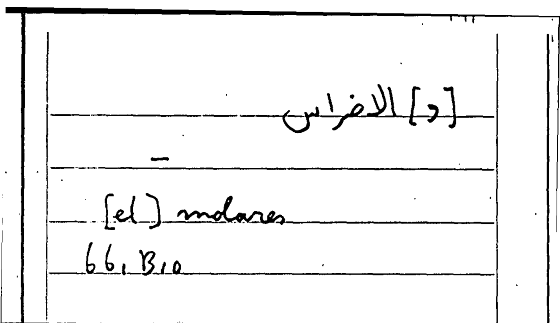 [د] الاضراس
—
[el] molares
66, B, 0